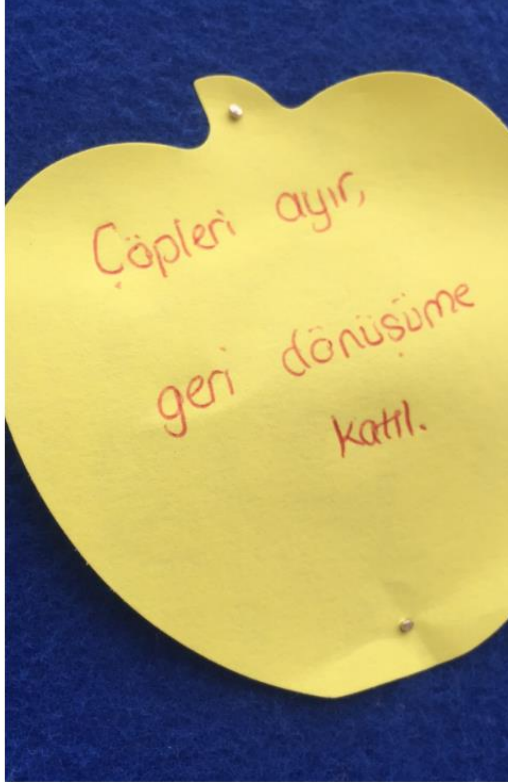 Çöpleri ayır,
geri dönüşüme
katıl.